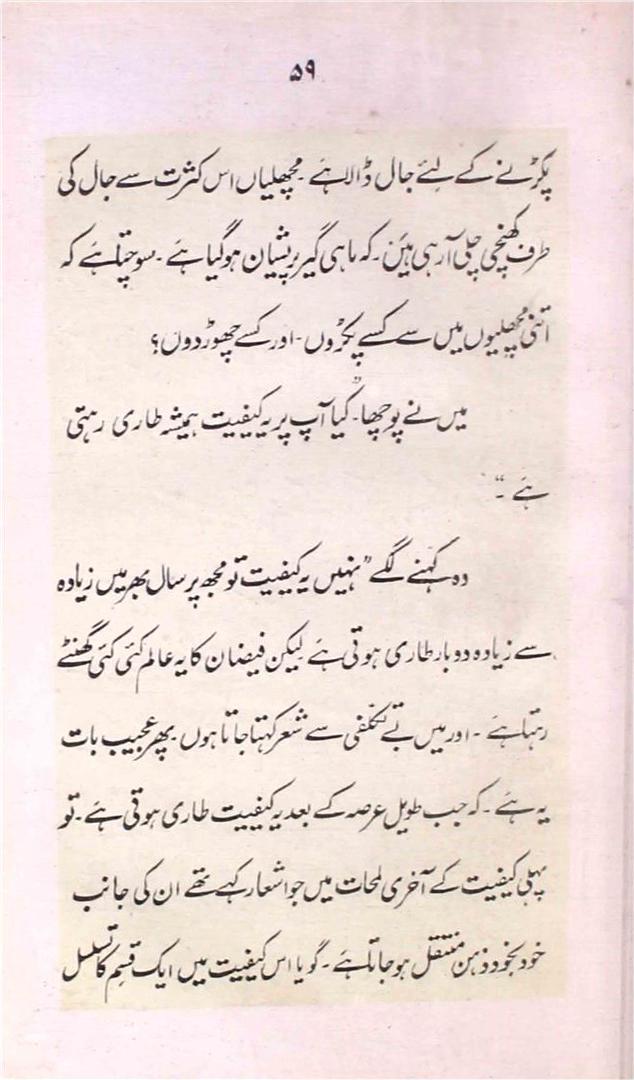 ۵۹
پکڑنے کے لئے جال ڈالا ہے ۔ مچھلیاں اس کثرت سے جال کی
طرف کھنچی چلی آرہی ہیں ۔ کہ ماہی گیر پریشان ہوگیا ہے ۔ سوچتا ہے کہ
اتنی مچھلیوں میں سے کسے پکڑوں ۔ اور کسے چھوڑ دوں؟
میں نے پوچھا ۔ "کیا آپ پر یہ کیفیت ہمیشہ طاری رہتی
ہے ۔"
وہ کہنے لگے "نہیں یہ کیفیت تو مجھ پر سال بھر میں زیادہ
سے زیادہ دو بار طاری ہوتی ہے لیکن فیضان کا یہ عالم کئی کئی گھنٹے
رہتا ہے ۔ اور میں بے تکلفی سے شعر کہتا جاتا ہوں ۔ پھر عجیب بات
یہ ہے ۔ کہ جب طویل عرصہ کے بعد یہ کیفییت طاری ہوتی ہے ۔ تو
پہلی کیفیت کے آخری لمحات میں جو اشعار کہے تھے ان کی جانب
خود بخود ذہن منتقل ہو جاتا ہے ۔ گویا اس کیفیت میں ایک قسم کا تسلسل